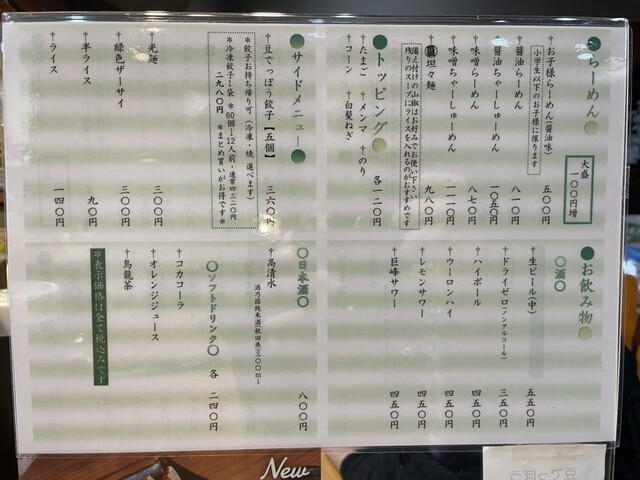 ●らーめん●
大盛
一〇〇円増
†お子様らーめん(醤油味) 五〇〇円
小学生以下のお子様に限ります
†醤油らーめん 八一〇円
†醤油ちゃーしゅーめん 一〇五〇円
†味噌らーめん 八七〇円
†味噌ちゃーしゅーめん 一一一〇円
坦々麺 九八〇円
備え付けの山椒はお好みでお使い下さい
残りのスープにライスを入れるのがおすすめです
●トッピング● 各一二〇円
†たまご †メンマ †のり
†コーン †白髪ねぎ
●サイドメニュー●
†豆でっぽう餃子【五個】 三六〇円
†餃子お持ち帰り可(冷凍・焼 選べます)
*冷凍餃子1袋 *60個→12人前・通常四三二〇円
二九八〇円 *まとめ買いがお得です*
†光麺 三〇〇円
†緑色ザーサイ 三〇〇円
†半ライス 九〇円
†ライス 一四〇円
●お飲み物●
〇酒〇
†生ビール(中) 五五〇円
†ドライゼロ(ノンアルコール) 三五〇円
†ハイボール 四五〇円
†ウーロンハイ 四五〇円
†レモンサワー 四五〇円
†巨峰サワー 四五〇円
〇日本酒〇
†高清水 八〇〇円
酒乃国純米酒(秋田県)三〇〇ml
〇ソフトドリンク〇 各 二四〇円
†コカコーラ
†オレンジジュース
†烏龍茶
*表示価格は全て税込みです
New